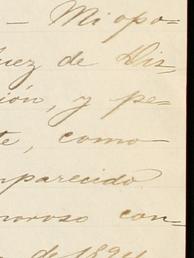 — Mi opo-
uez de Dis,
ión, y pe-
te, como
mparecido
moroso con-
de 1894